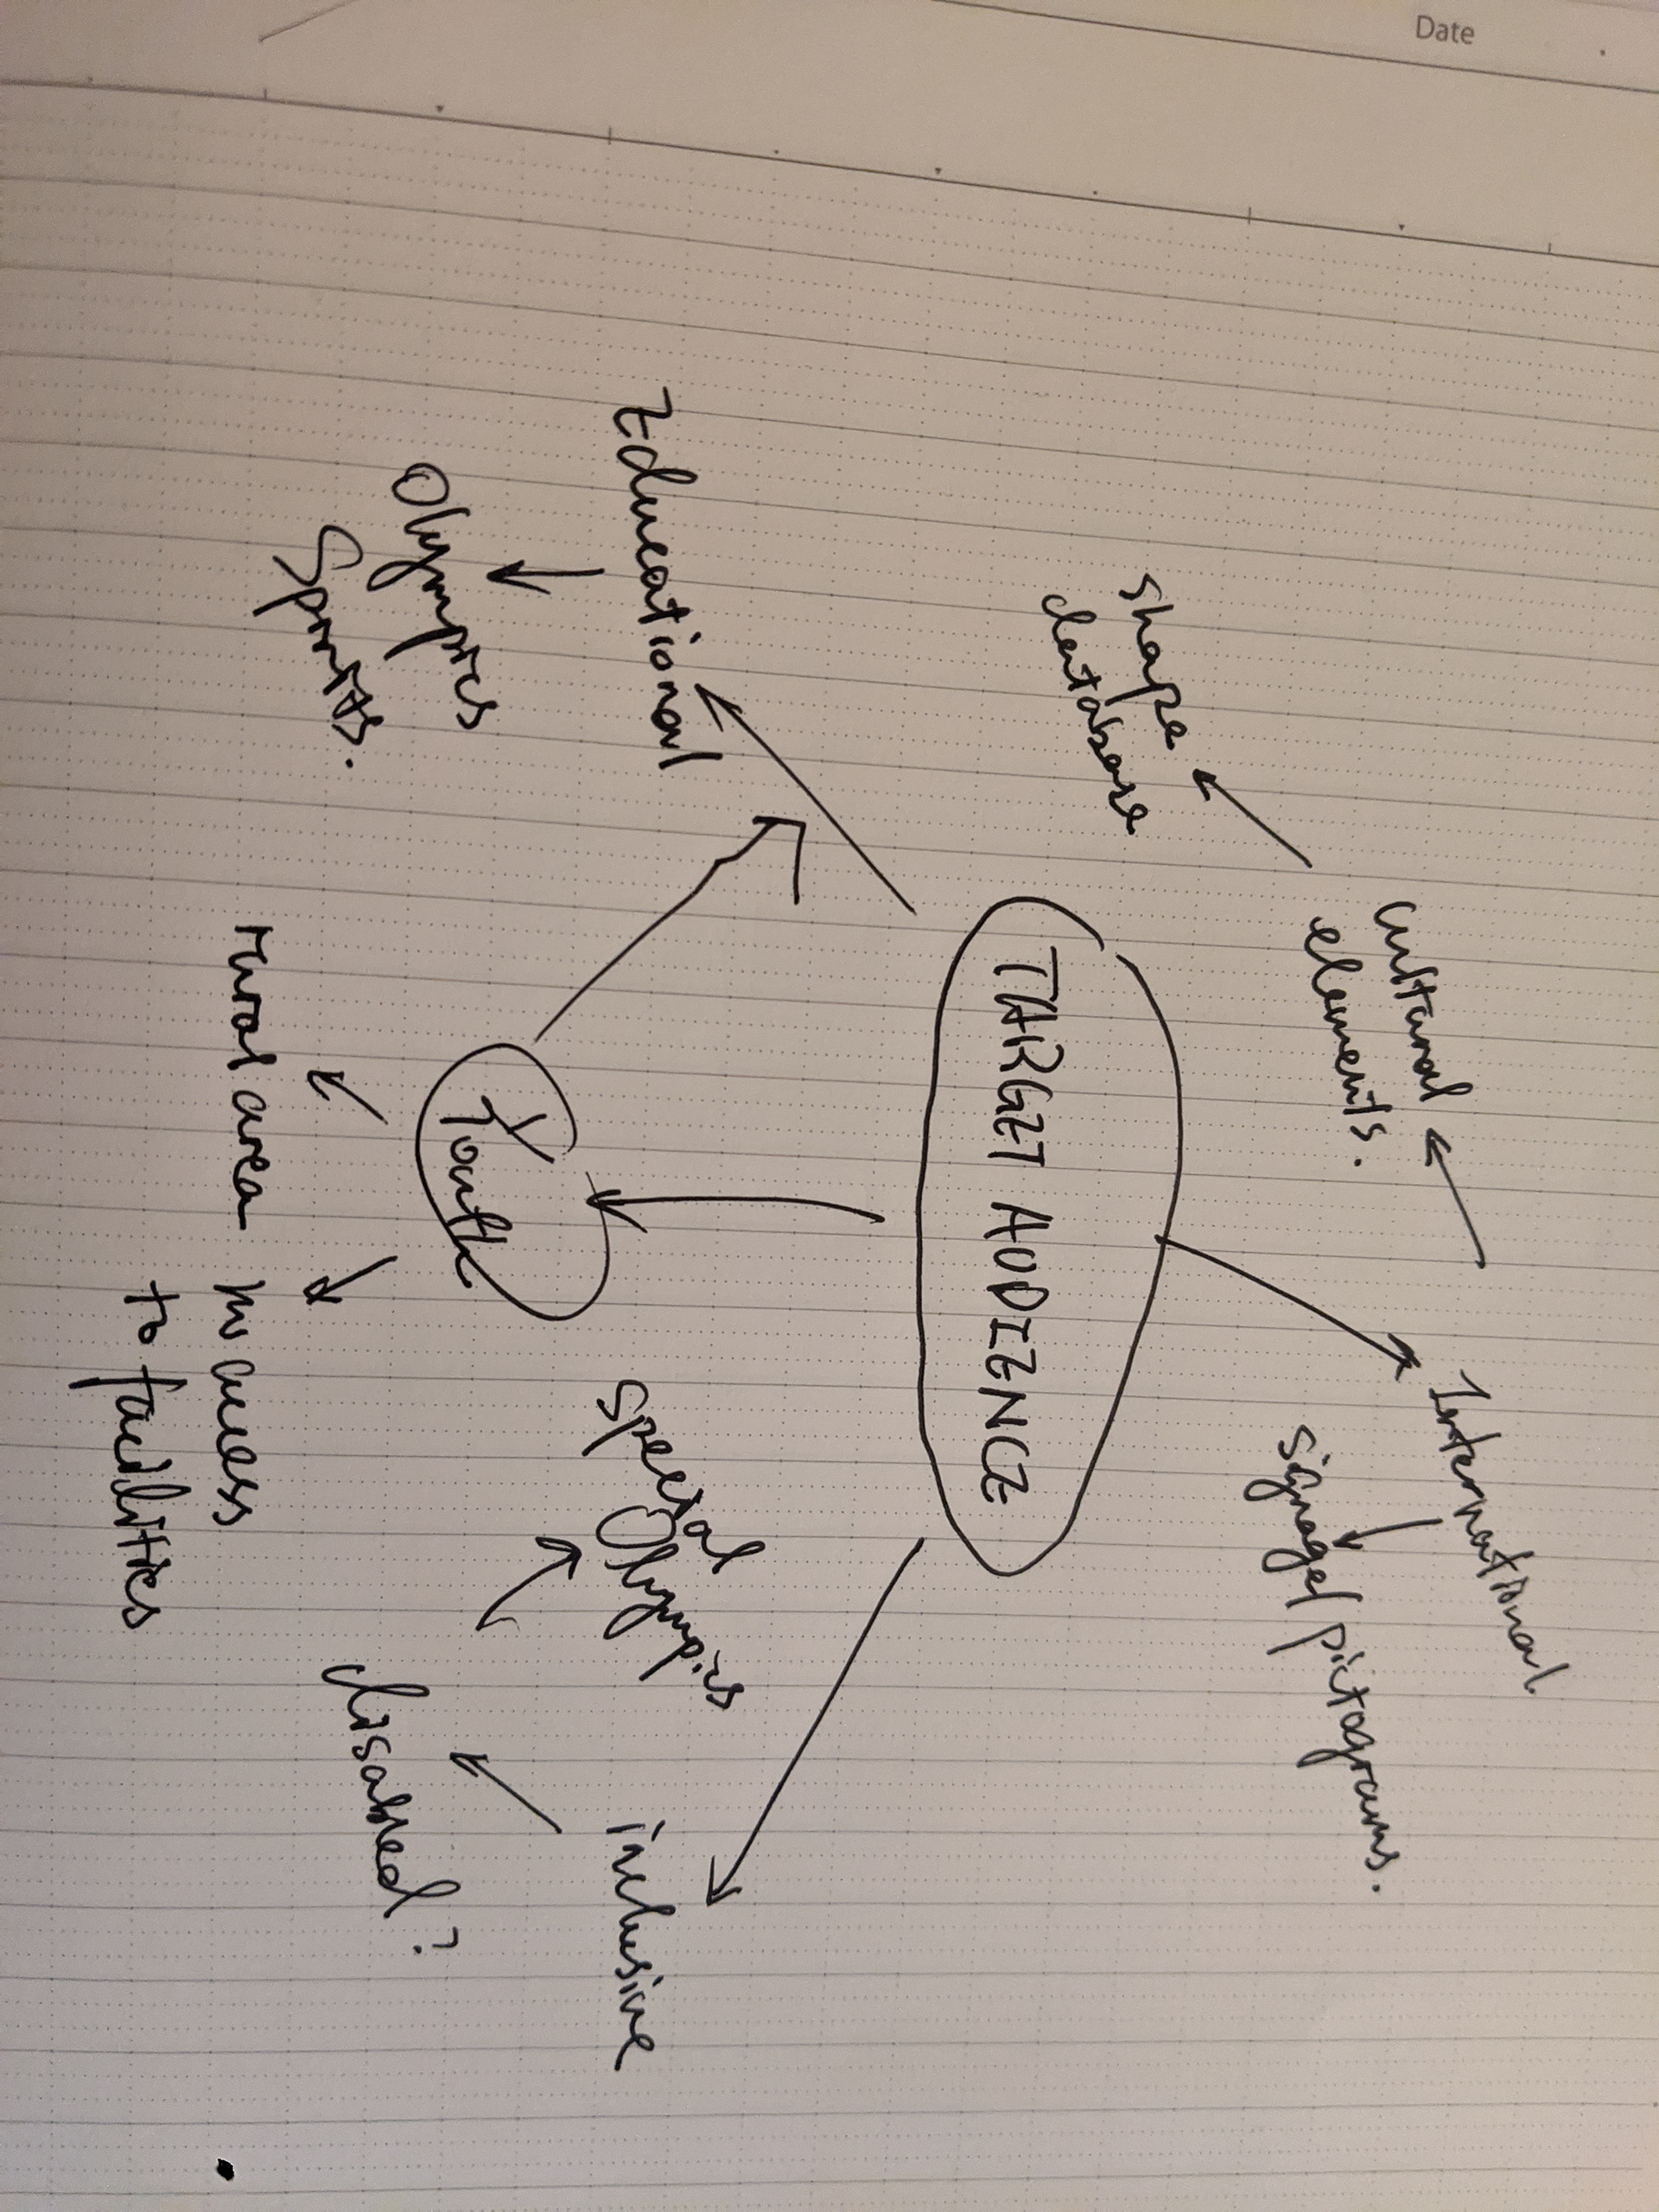 Date
International
signage/pictograms.
cultural
elements.
shape
database
TARGET AUDIENCE
Educational
Olympics
Sports.
Youth
rural area
no access
to facilities
inclusive
disabled?
special
Olympics